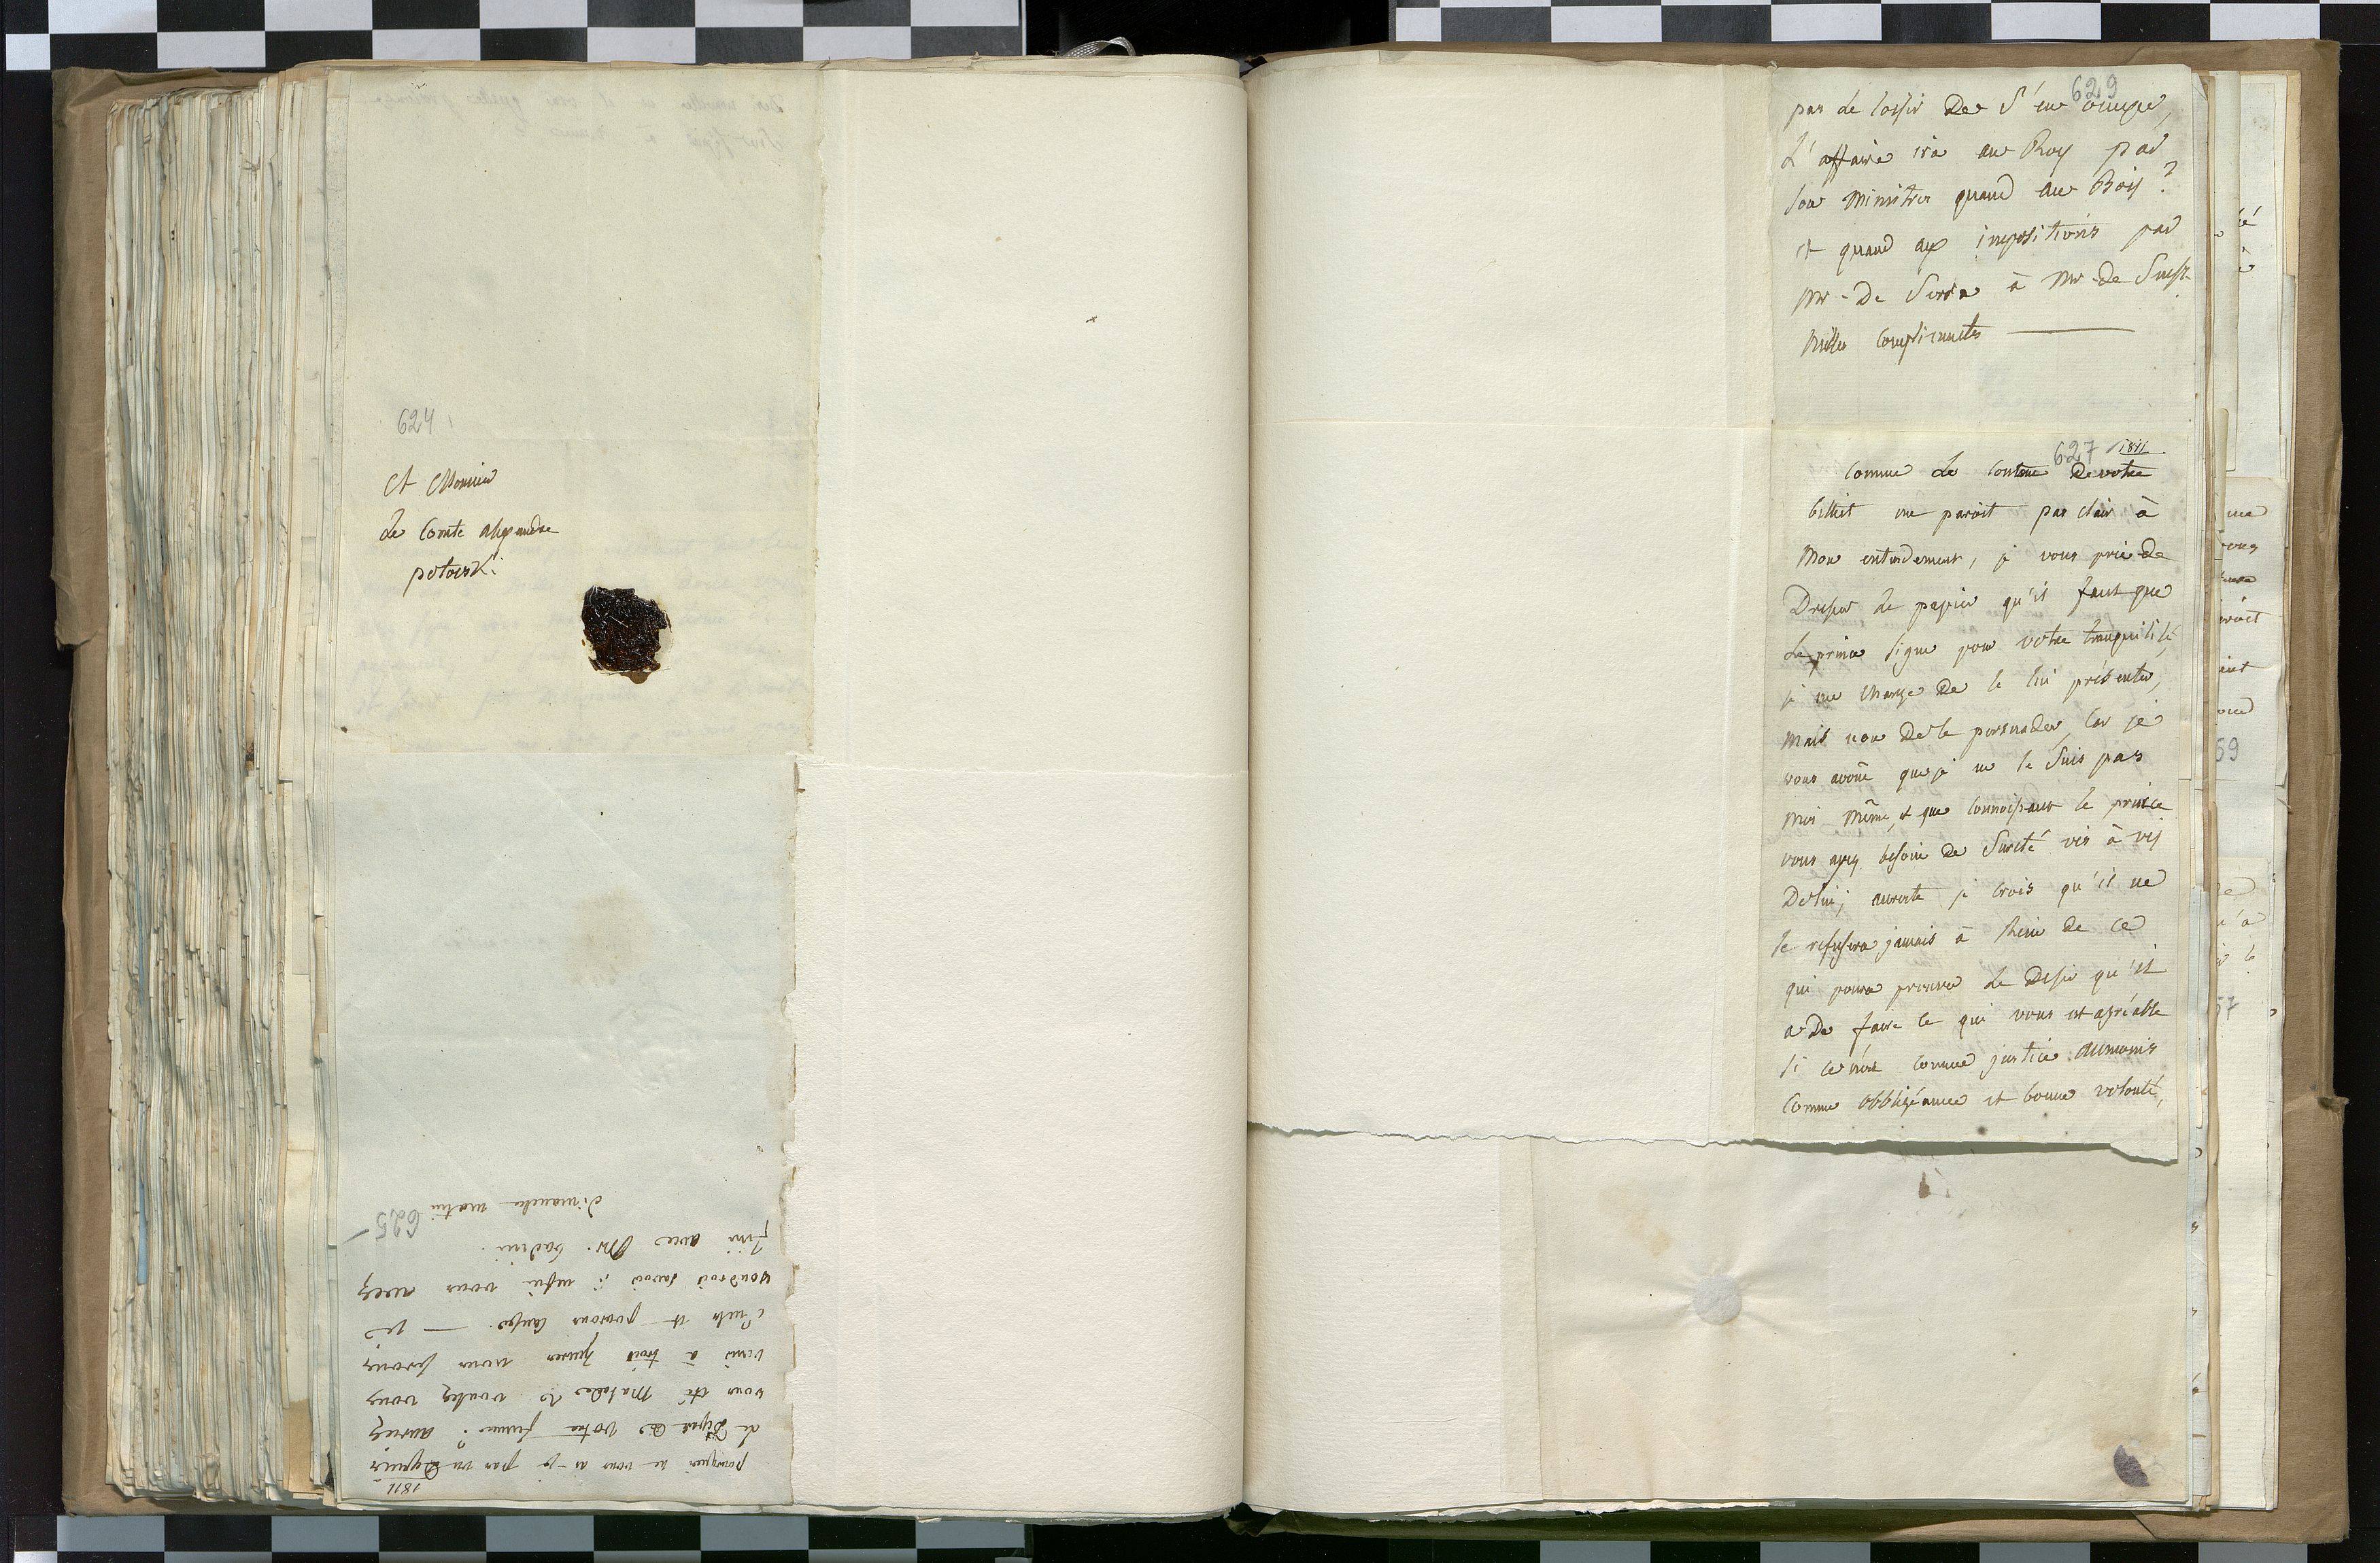 624
A Monsieur
Le Comte alexandre
potocki
1811
pourquoi ne vous ai-je pas vu depuis
le depart de votre femme? auriez
vous été malade? voulez vous
venir à trois heures nous serons
seuls et pourons causer. — je
voudrois savoir si enfin vous avez
fini avec Mr. badeni.
dimanche matin
625
629
pas le loisir de s'en occuper,
L'affaire ira au Roy par
son Ministre quand au Bois?
et quand aux impositions par
Mr. De Serra à Mr. De
Milles compliments
627 1811
comme le contenu de votre
billiet me paroit pas clair à
mon entendement, je vous prie de
Dresser le papier qu'il faut que
Le prince signe pour votre tranquilité,
je me charge de le lui présenter,
mais non de le persuader, car je
vous avoüe que je ne le suis pas
moi même, et que connoissant le prince
vous ayez besoin de Sureté vis à vis
De lui; aureste je crois qu'il ne
se refusera jamais à Rien de ce
qui poura prouver Le Desir qu'il
a De faire ce qui vous est agréable
si ce n'est comme justice aumoins
comme obbligéance et bonne volonté,
59
57